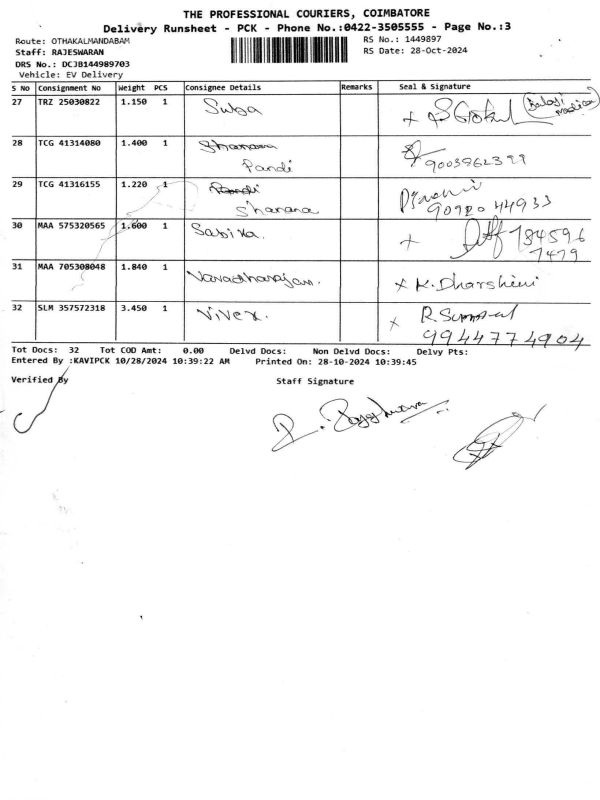 THE PROFESSIONAL COURIERS, COIMBATORE
Delivery Runsheet - PCK - Phone No.:0422-3505555 - Page No.:3
Route: OTHAKALMANDABAM
RS No.: 1449897
Staff: RAJESWARAN
RS Date: 28-Oct-2024
DRS No.: DCJB144989703
Vehicle: EV Delivery
S No Consignment No Weight PCS Consignee Details Remarks Seal & Signature
27 TRZ 25030822 1.150 1 Suba
28 TCG 41314080 1.400 1 Sharana
Pandi 9003962399
29 TCG 41316155 1.220 1 Pandi
Sharana 90920 44933
30 MAA 575320565 1.600 1 Sabika. 784596
7479
31 MAA 705308048 1.840 1 Varadharajan. x K. Dharshini
32 SLM 357572318 3.450 1 Vivek. x R.
9944774904
Tot Docs: 32 Tot COD Amt: 0.00 Delvd Docs: Non Delvd Docs: Delvy Pts:
Entered By :KAVIPCK 10/28/2024 10:39:22 AM Printed On: 28-10-2024 10:39:45
Verified By Staff Signature